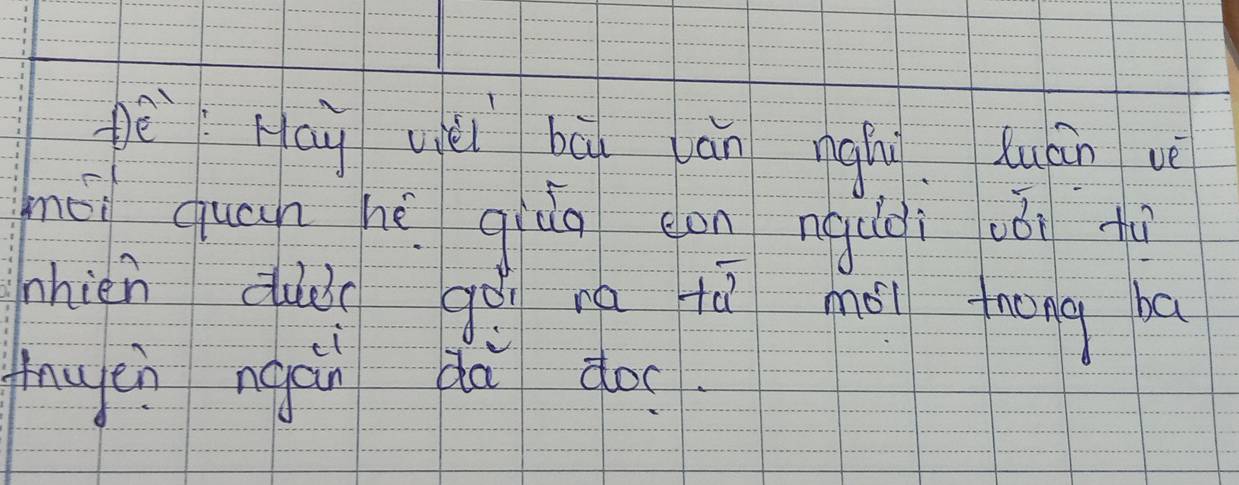 Đề: Hãy viết bài văn nghị luận về
mối quan hệ giữa con người với tự
nhiên được gợi ra từ một trong ba
truyện ngắn đã đọc.